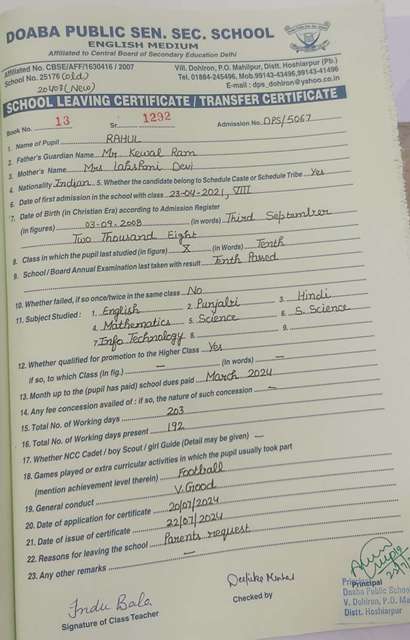 DOABA PUBLIC SEN. SEC. SCHOOL
ENGLISH MEDIUM
Affiliated to Central Board of Secondary Education Delhi
Affiliated No. CBSE/AFF/1630416 / 2007
Vill. Dohlron, P.O. Mahilpur, Distt. Hoshiarpur (Pb.)
School No. 25176 (old)
Tel. 01884-245496, Mob.99143-43496,99143-41496
20407 (New)
E-mail : dps_dohlron@yahoo.co.in
SCHOOL LEAVING CERTIFICATE / TRANSFER CERTIFICATE
Book No. 13 Sr. 1292 Admission No. DPS/5067
1. Name of Pupil RAHUL
2. Father's Guardian Name Mr Kewal Ram
3. Mother's Name Mrs Lakshmi Devi
4. Nationality Indian 5. Whether the candidate belong to Schedule Caste or Schedule Tribe Yes
6. Date of first admission in the school with class 23-04-2021, VIII
7. Date of Birth (in Christian Era) according to Admission Register
(in figures) 03-09-2008 (in words) Third September
Two Thousand Eight
8. Class in which the pupil last studied (in figure) X (in Words) Tenth
9. School / Board Annual Examination last taken with result Tenth Passed
10. Whether failed, if so once/twice in the same class No
11. Subject Studied : 1. English 2. Punjabi 3. Hindi
4. Mathematics 5. Science 6. S. Science
7. Info Technology 8. 9.
12. Whether qualified for promotion to the Higher Class Yes
if so, to which Class (In fig.) — (In words) —
13. Month up to the (pupil has paid) school dues paid March 2024
14. Any fee concession availed of : if so, the nature of such concession —
15. Total No. of Working days 203
16. Total No. of Working days present 192
17. Whether NCC Cadet / boy Scout / girl Guide (Detail may be given) —
18. Games played or extra curricular activities in which the pupil usually took part
(mention achievement level therein) Football
19. General conduct V. Good
20. Date of application for certificate 20/07/2024
21. Date of issue of certificate 22/07/2024
22. Reasons for leaving the school Parents request
23. Any other remarks —
Indu Bala
Signature of Class Teacher
Checked by
Principal
Doaba Public School
V. Dohlron, P.O. Ma
Distt. Hoshiarpur